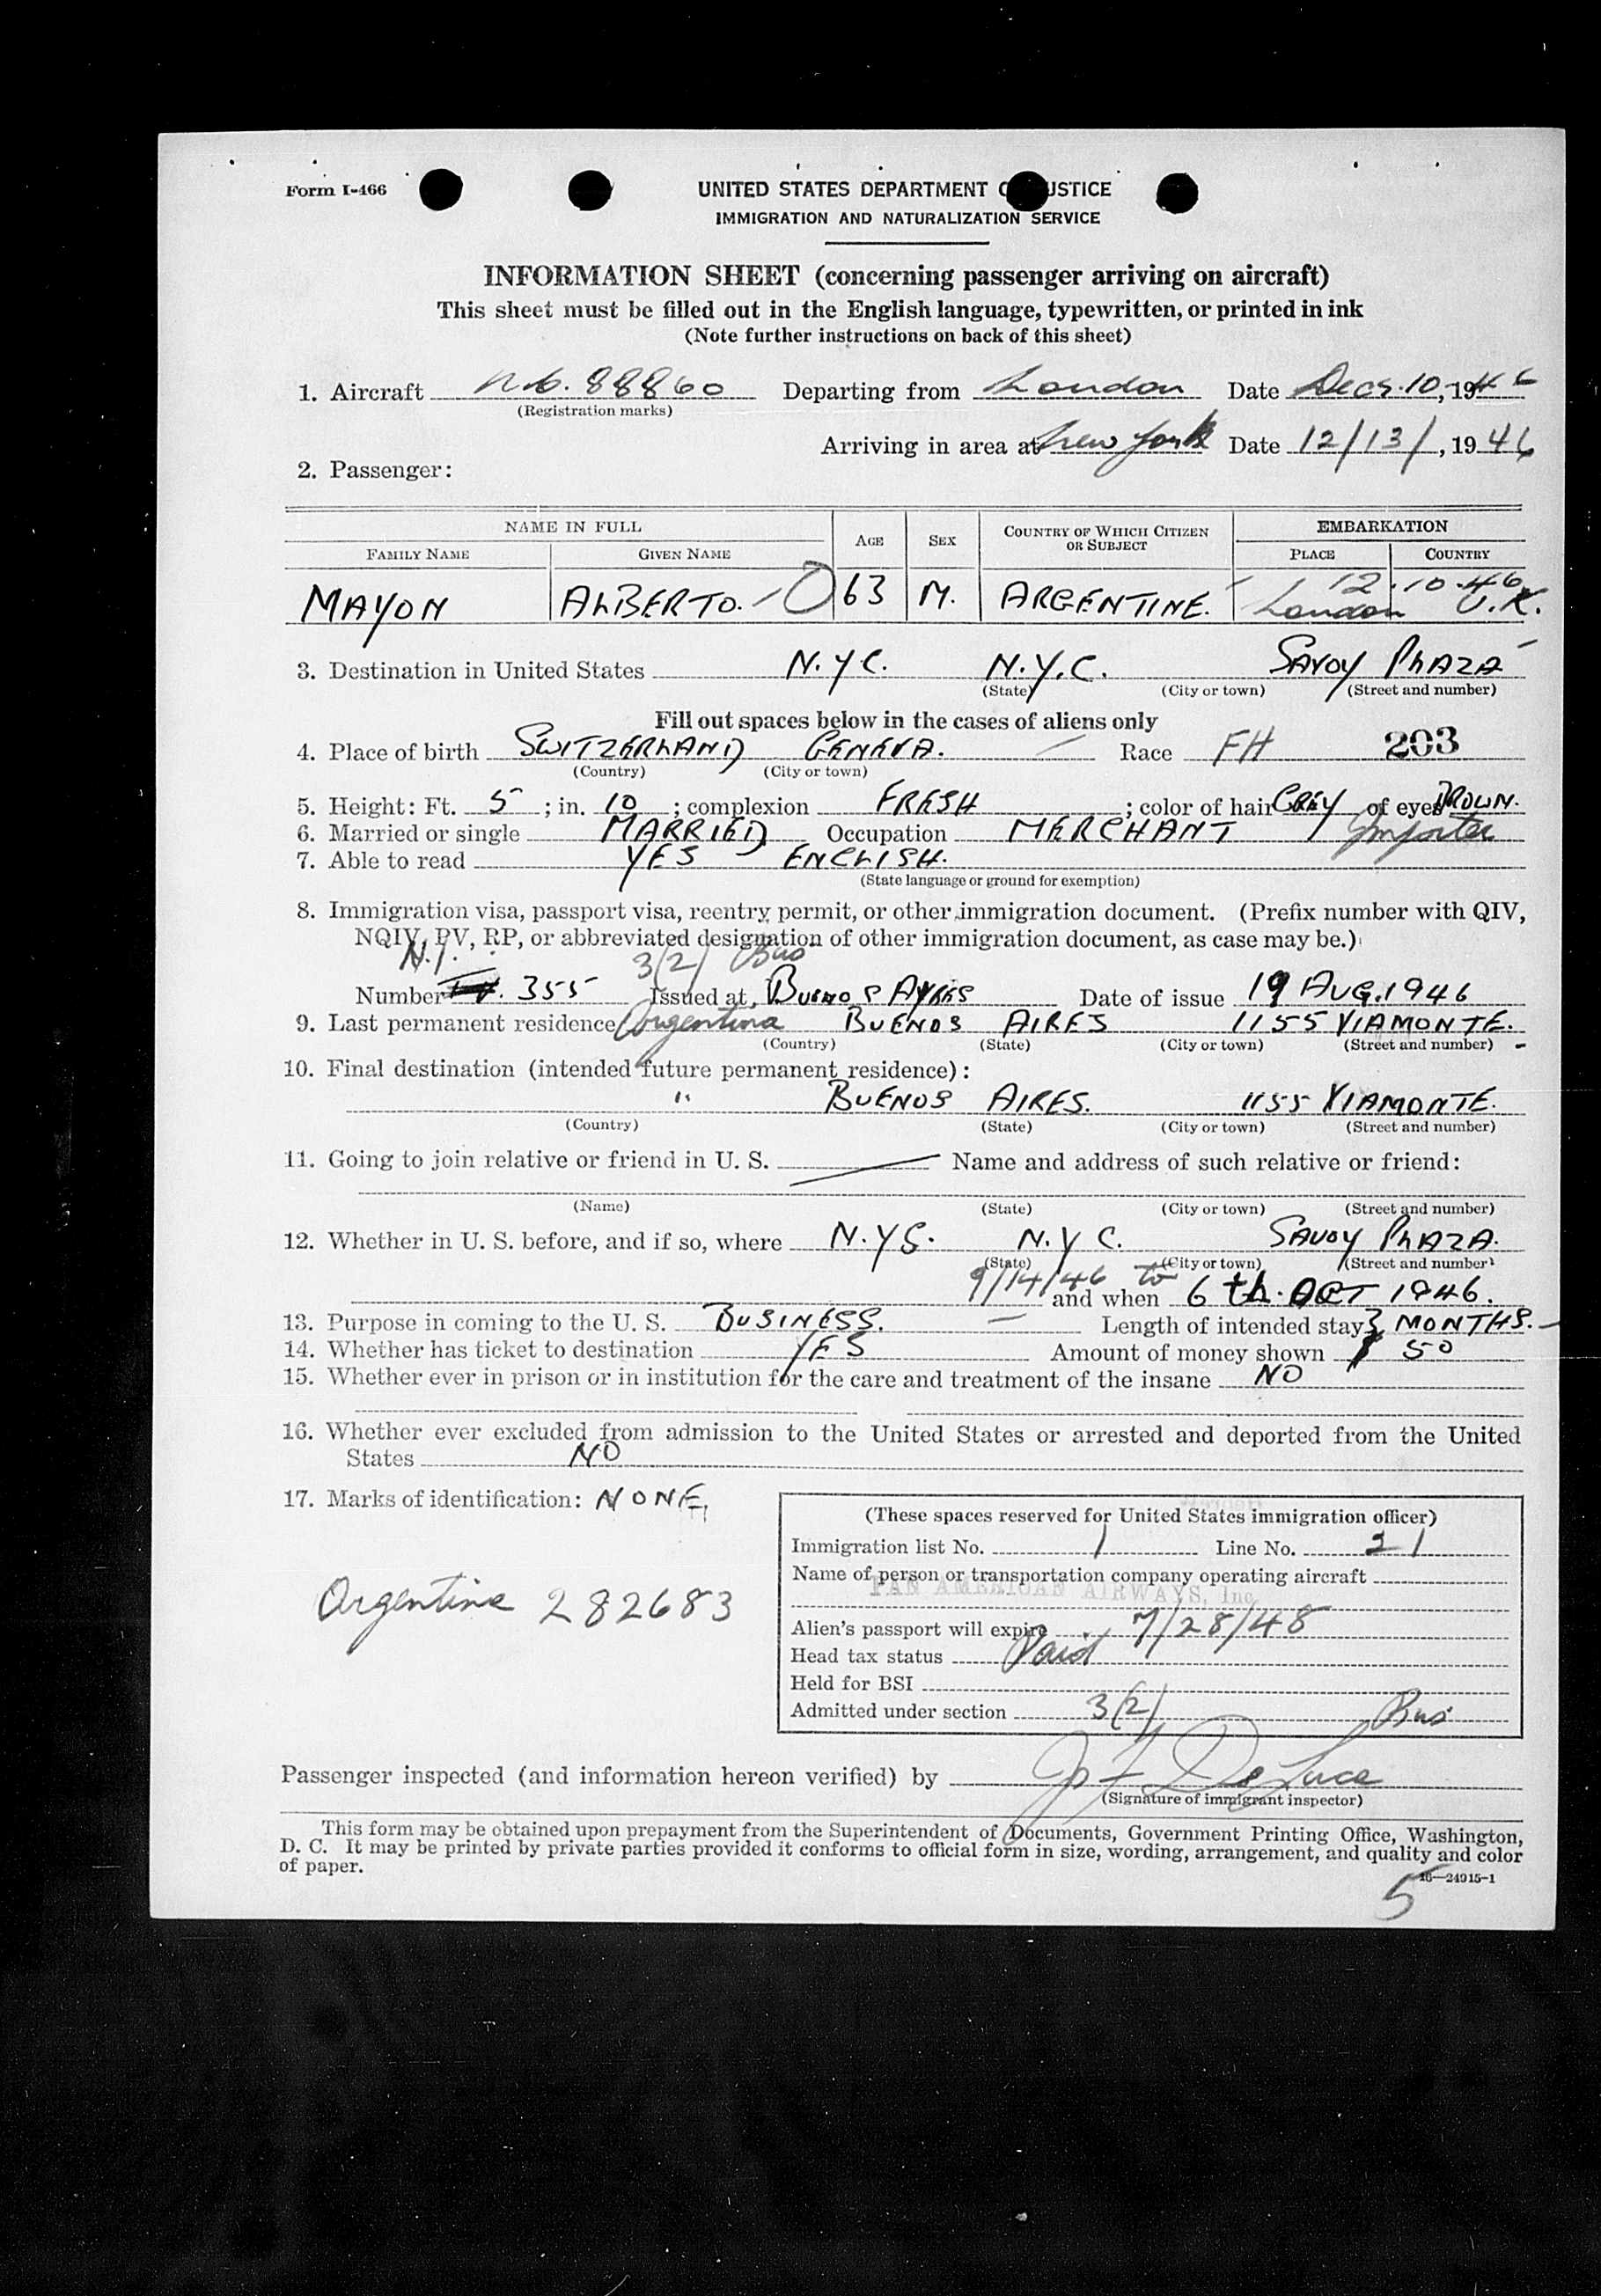 Form I-466
UNITED STATES DEPARTMENT O USTICE
IMMIGRATION AND NATURALIZATION SERVICE
INFORMATION SHEET (concerning passenger arriving on aircraft)
This sheet must be filled out in the English language, typewritten, or printed in ink
(Note further instructions on back of this sheet)
1. Aircraft 88860 Departing from London Date 10, 1946
(Registration marks)
Arriving in area at New York Date 12/13/, 1946
2. Passenger:
NAME IN FULL AGE SEX COUNTRY OF WHICH CITIZEN OR SUBJECT EMBARKATION
FAMILY NAME GIVEN NAME PLACE COUNTRY
12.10.46
MAYON ALBERTO. 63 M. ARGENTINE. London U.K.
3. Destination in United States N.Y.C. N.Y.C. SAVOY PLAZA
(State) (City or town) (Street and number)
Fill out spaces below in the cases of aliens only
4. Place of birth SWITZERLAND GENEVA. Race FH 203
(Country) (City or town)
5. Height: Ft. 5 ; in. 10 ; complexion FRESH ; color of hair GREY of eyes BROWN.
6. Married or single MARRIED Occupation MERCHANT Importer
7. Able to read YES ENGLISH.
(State language or ground for exemption)
8. Immigration visa, passport visa, reentry permit, or other immigration document. (Prefix number with QIV,
NQIV, PV, RP, or abbreviated designation of other immigration document, as case may be.)
3(2) Bus
Number 355 Issued at BUENOS AYRES Date of issue 19 AUG. 1946
9. Last permanent residence Argentina BUENOS AIRES 1155 VIAMONTE.
(Country) (State) (City or town) (Street and number)
10. Final destination (intended future permanent residence):
" BUENOS AIRES. 1155 VIAMONTE.
(Country) (State) (City or town) (Street and number)
11. Going to join relative or friend in U. S. Name and address of such relative or friend:
(Name) (State) (City or town) (Street and number)
12. Whether in U. S. before, and if so, where N.Y.S. N.Y C. SAVOY PLAZA.
(State) (City or town) (Street and number)
9/14/46 to
and when 6 th. OCT 1946.
13. Purpose in coming to the U. S. BUSINESS. Length of intended stay 3 MONTHS.
14. Whether has ticket to destination YES Amount of money shown $ 50
15. Whether ever in prison or in institution for the care and treatment of the insane NO
16. Whether ever excluded from admission to the United States or arrested and deported from the United
States NO
17. Marks of identification: NONE
(These spaces reserved for United States immigration officer)
Immigration list No. 1 Line No. 21
Name of person or transportation company operating aircraft
PAN AMERICAN AIRWAYS, Inc
Argentine 282683
Alien's passport will expire 7/28/48
Head tax status Paid
Held for BSI
Admitted under section 3(2) Bus
Passenger inspected (and information hereon verified) by De Luca
(Signature of immigrant inspector)
This form may be obtained upon prepayment from the Superintendent of Documents, Government Printing Office, Washington,
D. C. It may be printed by private parties provided it conforms to official form in size, wording, arrangement, and quality and color
of paper.
16—24915-1
5